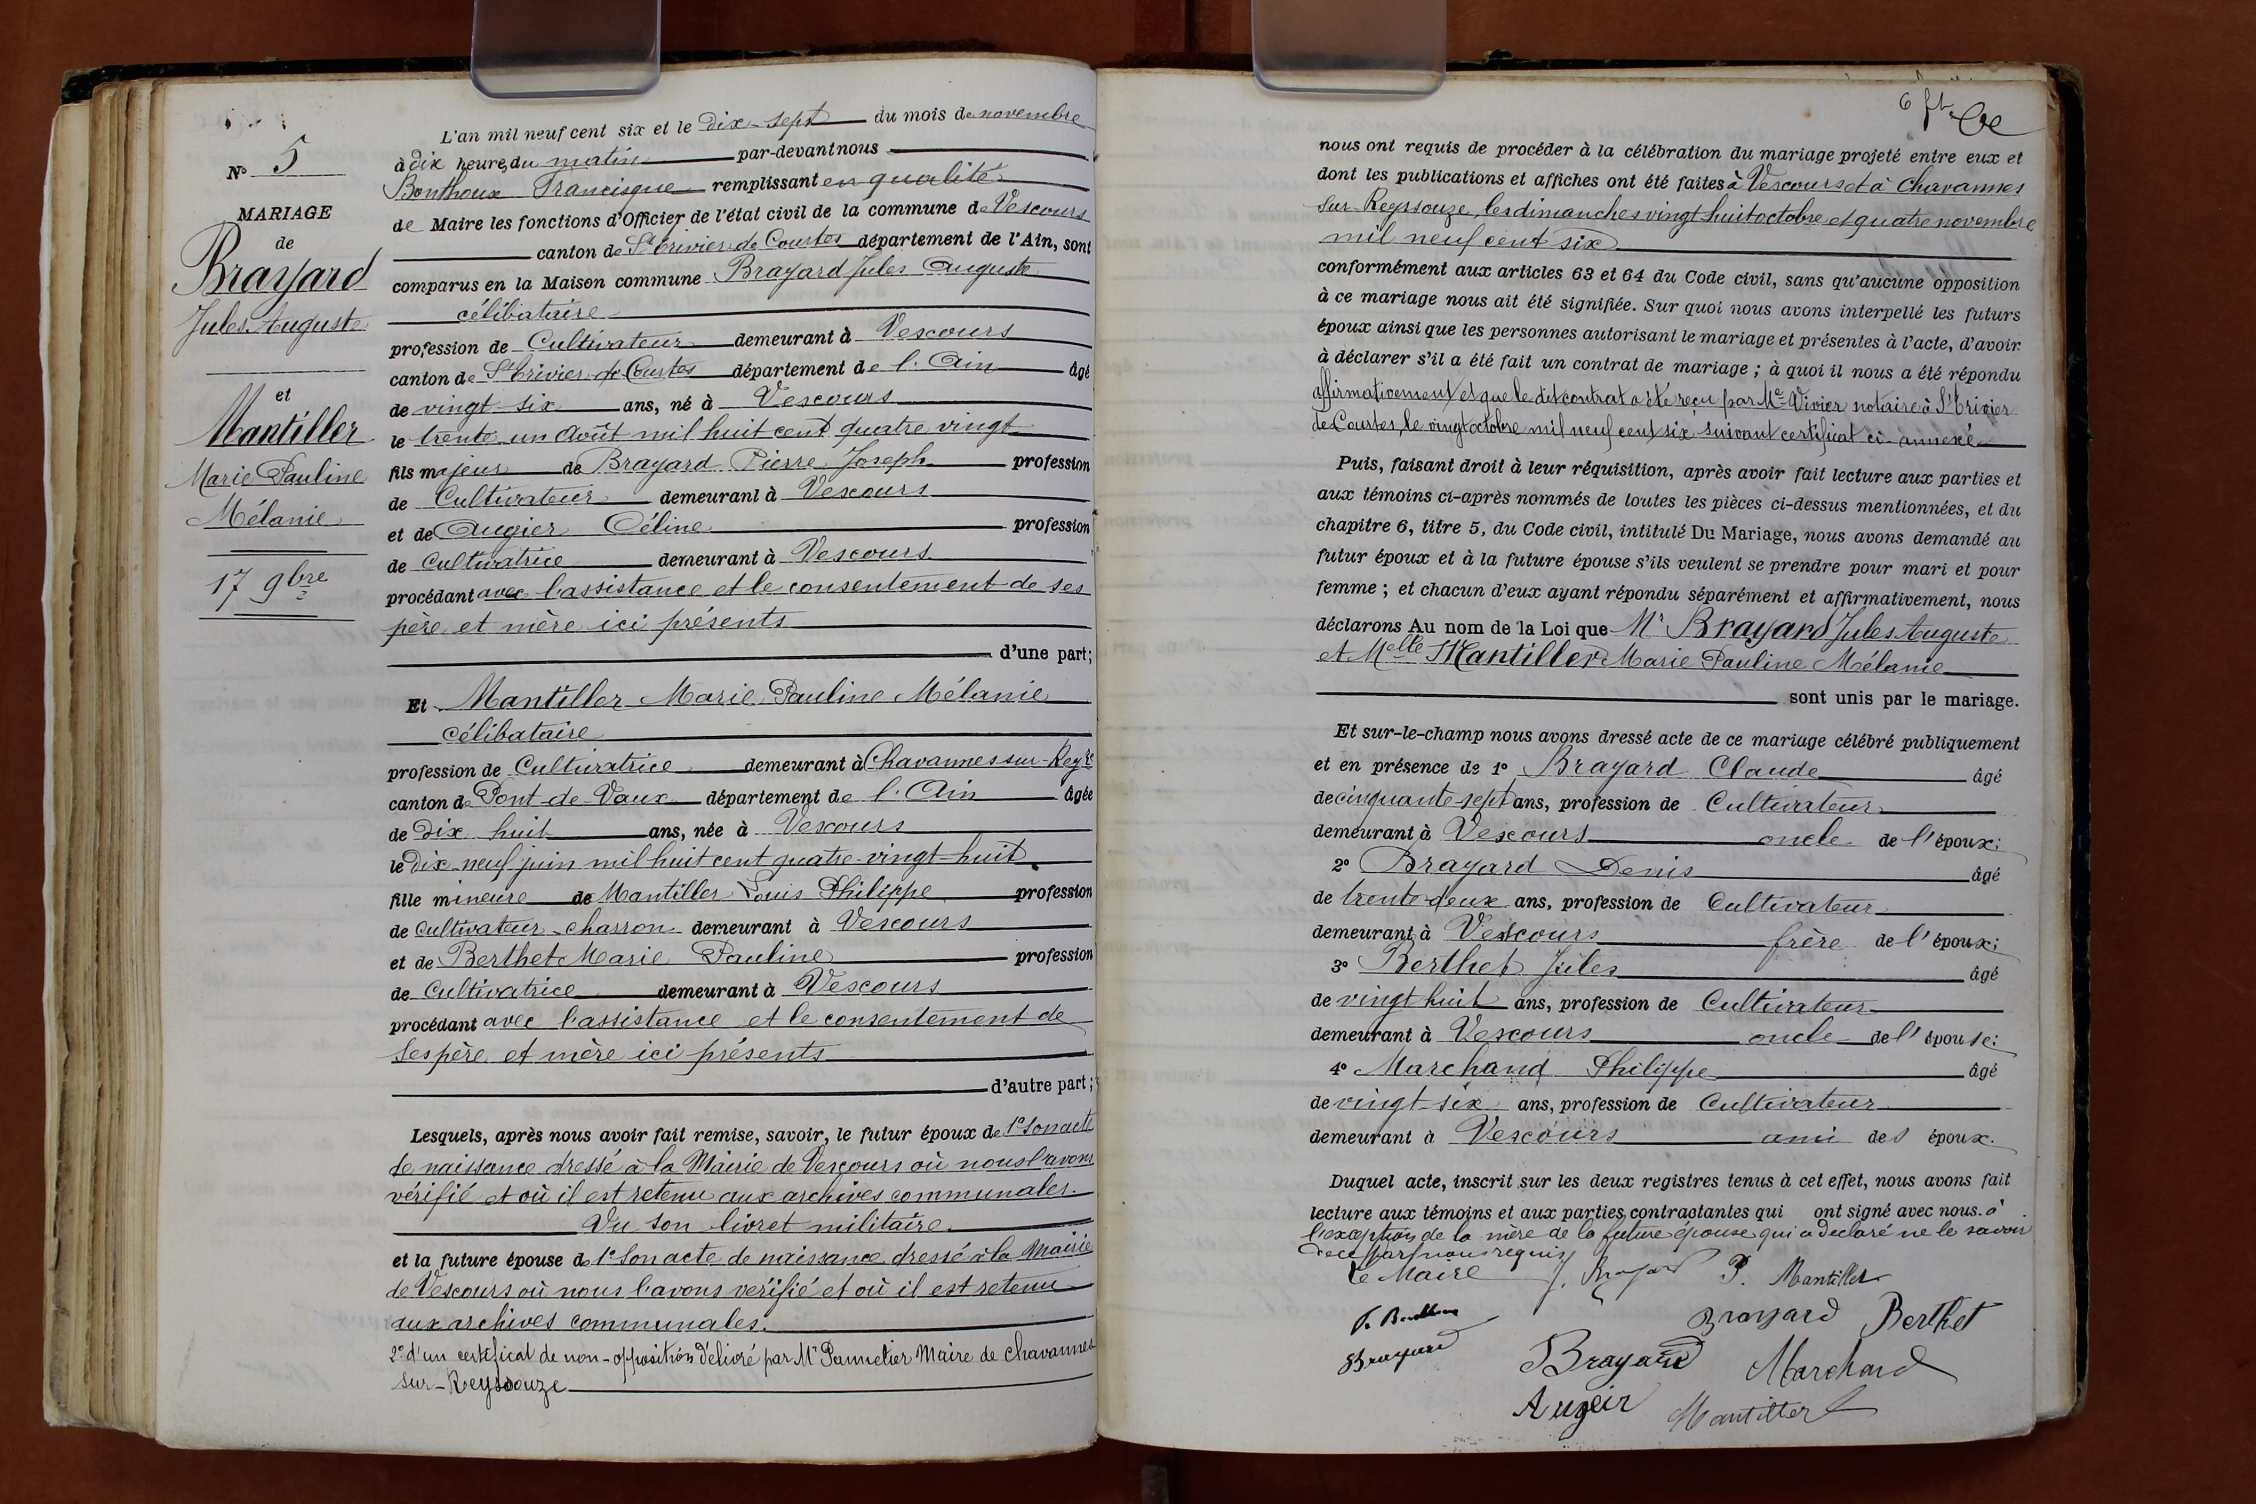 N° 5
MARIAGE
de
Brayard
Jules Auguste
et
Mantiller
Marie Pauline
Mélanie
17 9bre
L'an mil neuf cent six et le dix-sept du mois de novembre
à dix heures du matin par-devant nous
Bonthoux Francisque remplissant en qualité
de Maire les fonctions d'Officier de l'état civil de la commune de Vescours
canton de St Trivier de Courtes département de l'Ain, sont
comparus en la Maison commune Brayard Jules Auguste
célibataire
profession de Cultivateur demeurant à Vescours
canton de St Trivier de Courtes département de l'Ain âgé
de vingt-six ans, né à Vescours
le trente un Août mil huit cent quatre vingt
fils majeur de Brayard Pierre Joseph profession
de Cultivateur demeurant à Vescours
et de Augier Céline profession
de Cultivatrice demeurant à Vescours
procédant avec l'assistance et le consentement de ses
père et mère ici présents
d'une part;
Et Mantiller Marie Pauline Mélanie
célibataire
profession de Cultivatrice demeurant à Chavannes sur-Reyze
canton de Pont-de-Vaux département de l'Ain âgée
de dix huit ans, née à Vescours
le dix-neuf juin mil huit cent quatre-vingt-huit
fille mineure de Mantiller Louis Philippe profession
de cultivateur-charron demeurant à Vescours
et de Berthet Marie Pauline profession
de Cultivatrice demeurant à Vescours
procédant avec l'assistance et le consentement de
ses père et mère ici présents
d'autre part;
Lesquels, après nous avoir fait remise, savoir, le futur époux de 1° son acte
de naissance dressé à la Mairie de Vescours où nous l'avons
vérifié et où il est retenu aux archives communales.
Vu son livret militaire.
et la future épouse de 1° son acte de naissance dressé à la Mairie
de Vescours où nous l'avons vérifié et où il est retenu
aux archives communales.
2° d'un certificat de non-opposition délivré par Mr Pannetier Maire de Chavannes
sur-Reyssouze
6 ft
nous ont requis de procéder à la célébration du mariage projeté entre eux et
dont les publications et affiches ont été faites à Vescours et à Chavannes
sur-Reyssouze, les dimanches vingt huit octobre et quatre novembre
mil neuf cent six
conformément aux articles 63 et 64 du Code civil, sans qu'aucune opposition
à ce mariage nous ait été signifiée. Sur quoi nous avons interpellé les futurs
époux ainsi que les personnes autorisant le mariage et présentes à l'acte, d'avoir
à déclarer s'il a été fait un contrat de mariage; à quoi il nous a été répondu
affirmativement et que le dit contrat a été reçu par Me Vivier notaire à St Trivier
de Courtes, le vingt octobre mil neuf cent six suivant certificat ci-annexé
Puis, faisant droit à leur réquisition, après avoir fait lecture aux parties et
aux témoins ci-après nommés de toutes les pièces ci-dessus mentionnées, et du
chapitre 6, titre 5, du Code civil, intitulé Du Mariage, nous avons demandé au
futur époux et à la future épouse s'ils veulent se prendre pour mari et pour
femme; et chacun d'eux ayant répondu séparément et affirmativement, nous
déclarons Au nom de la Loi que Mr Brayard Jules Auguste
et Melle Mantiller Marie Pauline Mélanie
sont unis par le mariage.
Et sur-le-champ nous avons dressé acte de ce mariage célébré publiquement
et en présence de 1° Brayard Claude âgé
de cinquante-sept ans, profession de Cultivateur
demeurant à Vescours oncle de l'époux;
2° Brayard Denis âgé
de trente-deux ans, profession de Cultivateur
demeurant à Vescours frère de l'époux;
3° Berthet Jules âgé
de vingt huit ans, profession de Cultivateur
demeurant à Vescours oncle de l'épouse;
4° Marchand Philippe âgé
de vingt-six ans, profession de Cultivateur
demeurant à Vescours ami des époux.
Duquel acte, inscrit sur les deux registres tenus à cet effet, nous avons fait
lecture aux témoins et aux parties contractantes qui ont signé avec nous à
l'exception de la mère de la future épouse qui a déclaré ne le savoir
de ce par nous requis
Le Maire J. Brayard P. Mantiller
Brayard Berthet
Brayard Brayard Marchand
Augeir Mantiller